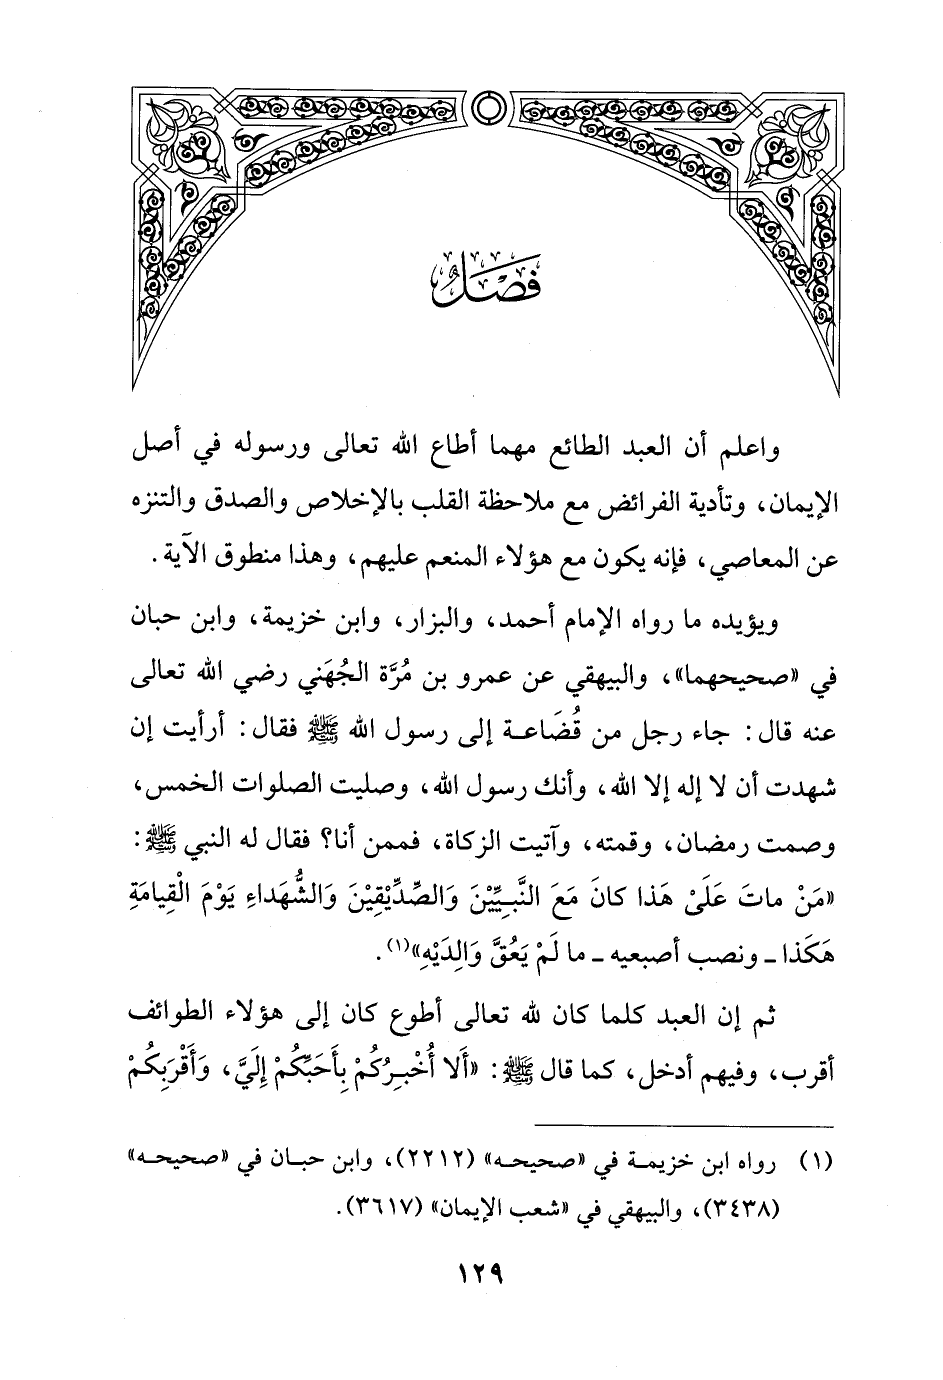 فَصْلٌ
واعلم أن العبد الطائع مهما أطاع الله تعالى ورسوله في أصل
الإيمان، وتأدية الفرائض مع ملاحظة القلب بالإخلاص والصدق والتنزه
عن المعاصي، فإنه يكون مع هؤلاء المنعم عليهم، وهذا منطوق الآية.
ويؤيده ما رواه الإمام أحمد، والبزار، وابن خزيمة، وابن حبان
في «صحيحهما»، والبيهقي عن عمرو بن مُرَّة الجُهَني رضي الله تعالى
عنه قال: جاء رجل من قُضَاعـة إلى رسول الله ﷺ فقال: أرأيت إن
شهدت أن لا إله إلا الله، وأنك رسول الله، وصليت الصلوات الخمس،
وصمت رمضان، وقمته، وآتيت الزكاة، فممن أنا؟ فقال له النبي ﷺ:
«مَنْ ماتَ عَلَىْ هَذا كانَ مَعَ النَّبِيِّيْنَ وَالصِّدِّيْقِيْنَ وَالشُّهَداءِ يَوْمَ الْقِيامَةِ
هَكَذا ـ ونصب أصبعيه ـ ما لَمْ يَعُقَّ وَالِدَيْهِ»(١).
ثم إن العبد كلما كان لله تعالى أطوع كان إلى هؤلاء الطوائف
أقرب، وفيهم أدخل، كما قال ﷺ: «أَلا أُخْبِرُكُمْ بِأَحَبِّكُمْ إِلَيَّ، وَأَقْرَبِكُمْ
(١) رواه ابن خزيمـة في «صحيحـه» (٢٢١٢)، وابن حبـان في «صحيحـه»
(٣٤٣٨)، والبيهقي في «شعب الإيمان» (٣٦١٧).
١٢٩